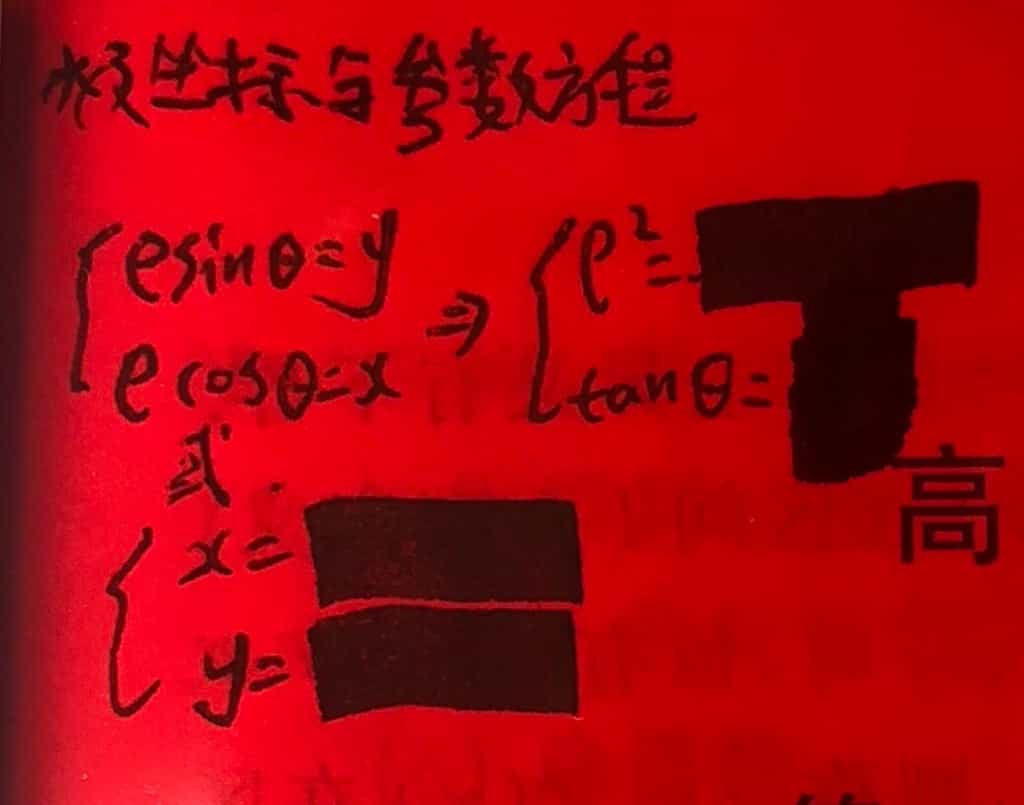 极坐标与参数方程
{ρsinθ=y
ρcosθ=x
⇒ {ρ²=
tanθ=
或
高
{x=
y=